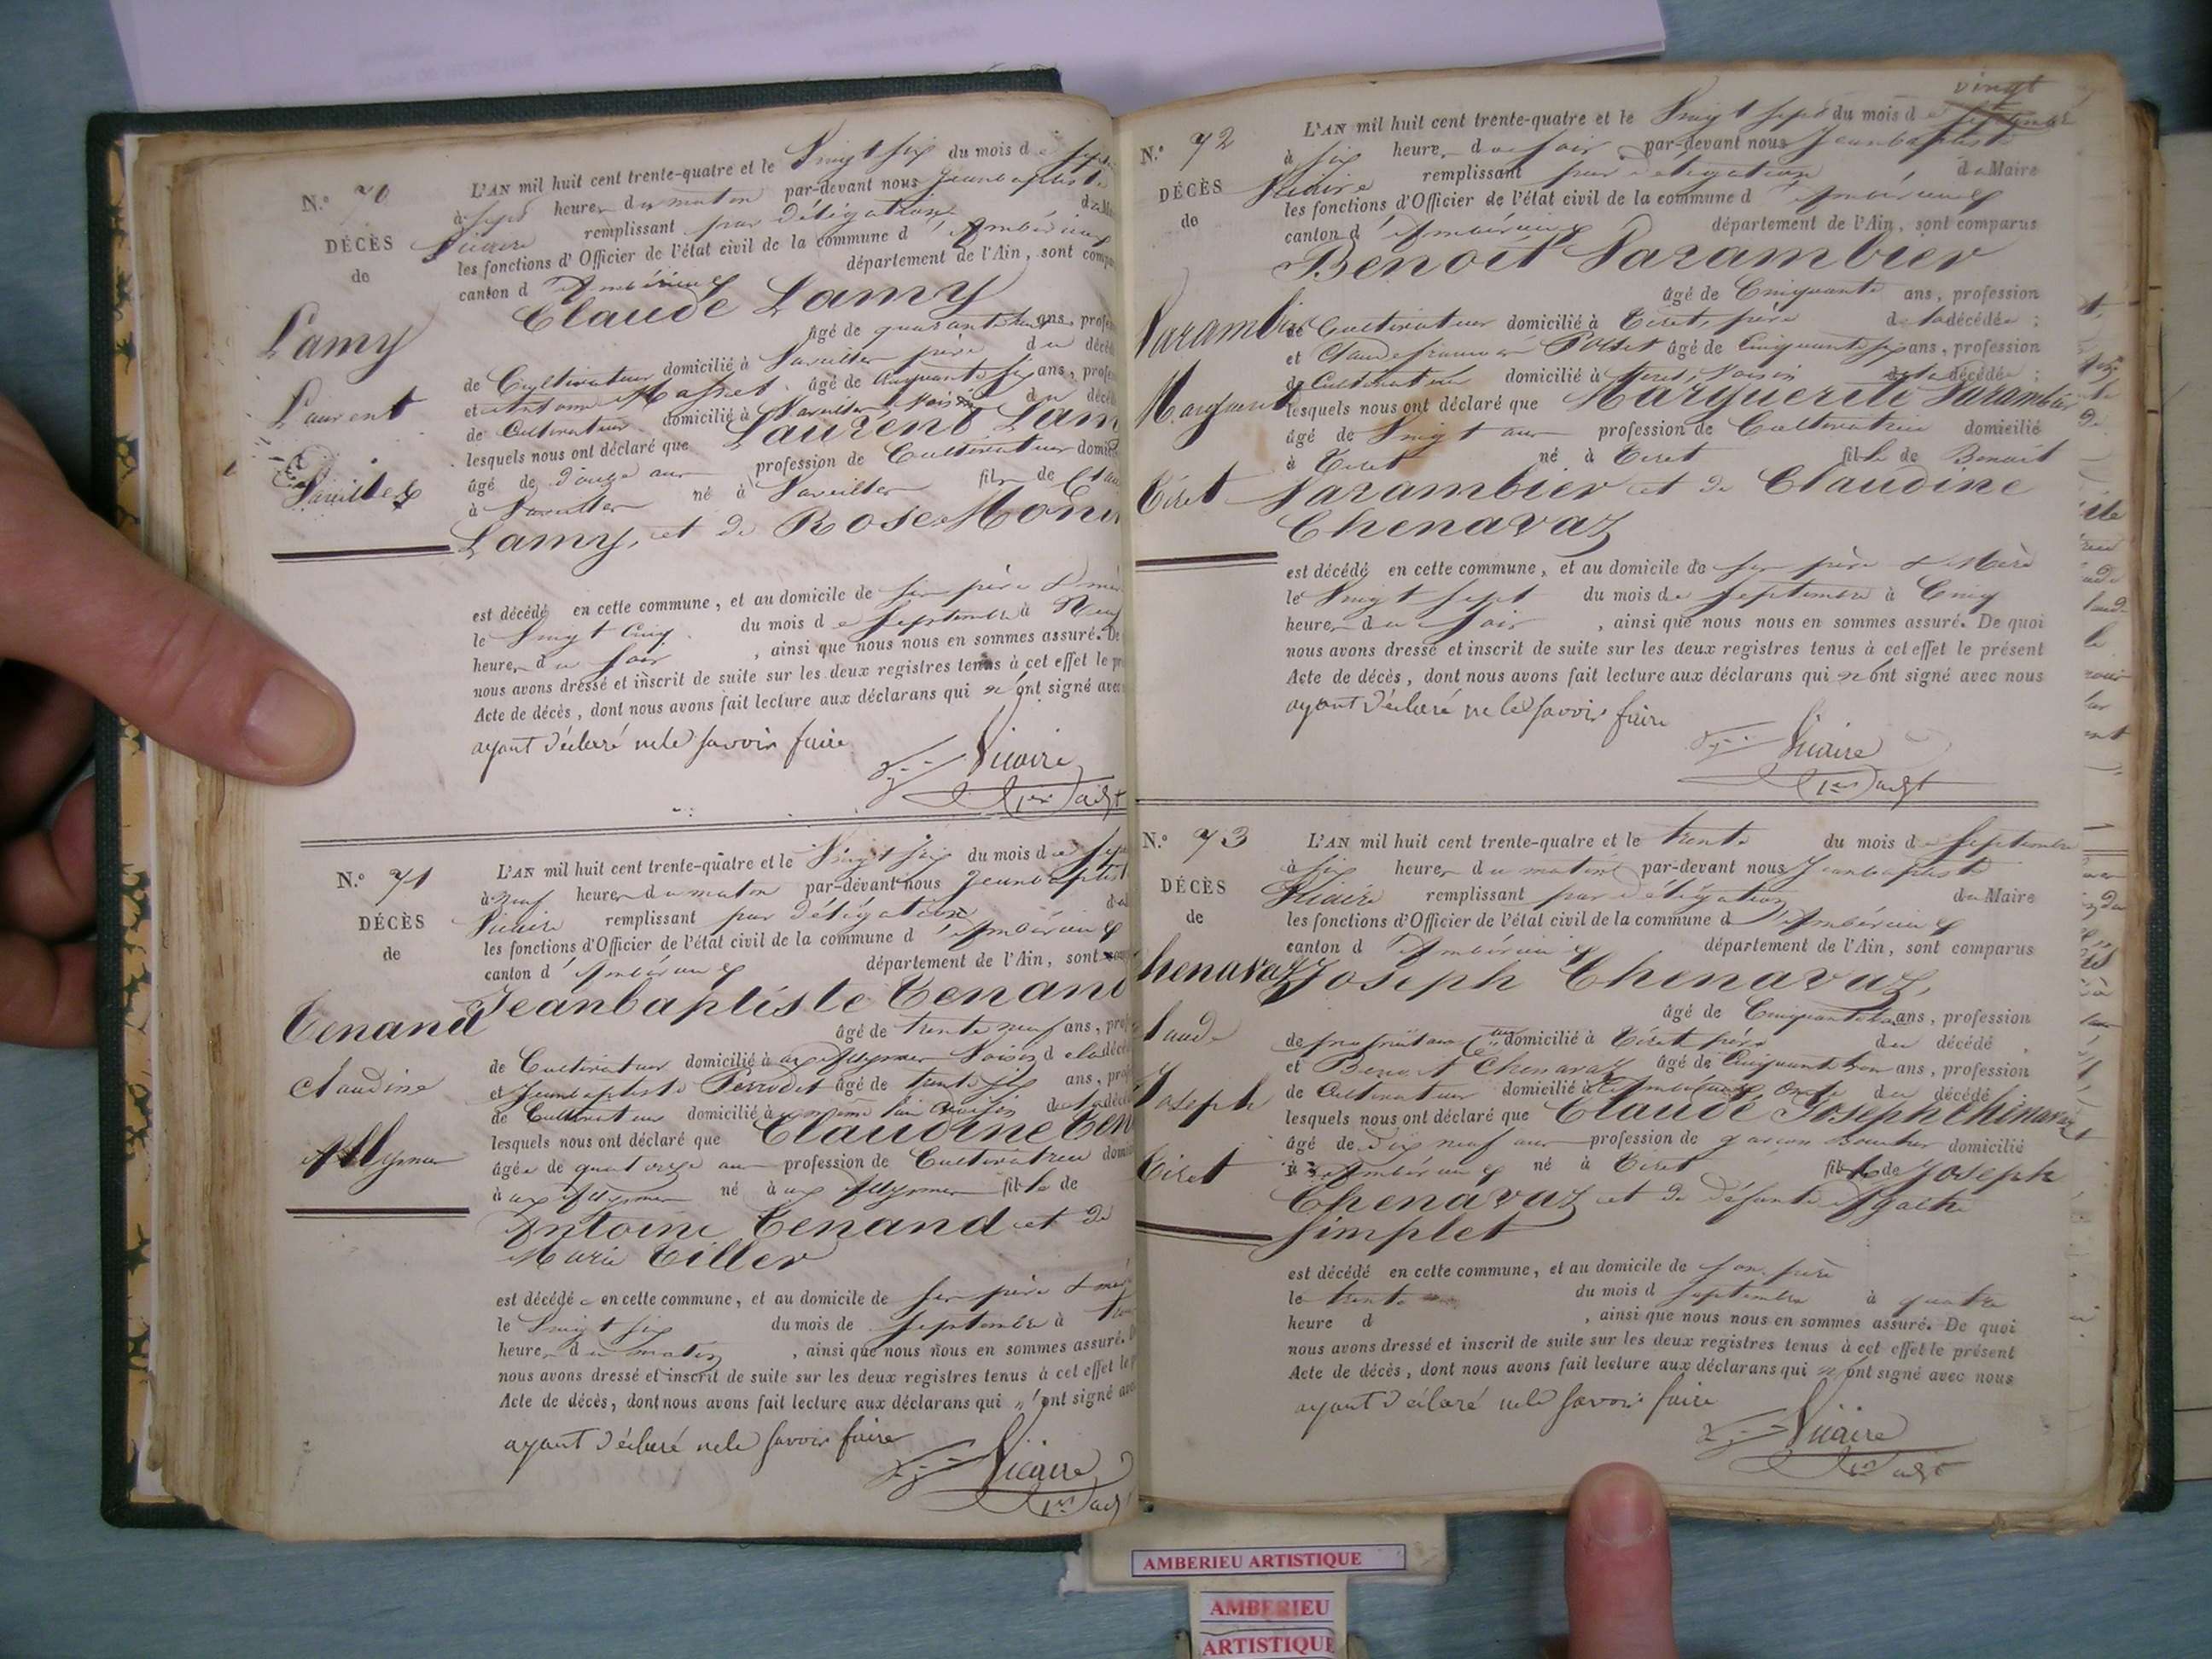 N.° 70
DÉCÈS
de
Lamy
Laurent
L'AN mil huit cent trente-quatre et le Vingt six du mois de
à sept heures du matin par-devant nous Jeanbaptiste
Vicaire remplissant par délégation
les fonctions d'Officier de l'état civil de la commune d'Ambérieux
canton d'Ambérieux département de l'Ain, sont
Claude Lamy
âgé de ans,
de Cultivateur domicilié à père du
et Antoine âgé de Cinquante six ans,
de Cultivateur domicilié à Voisin du
lesquels nous ont déclaré que Laurent
âgé de douze ans profession de Cultivateur
à né à fils de
Lamy, et de Rose
est décédé en cette commune, et au domicile de ses père &
le Vingt Cinq du mois de Septembre à Neuf
heures du Soir, ainsi que nous nous en sommes assuré.
nous avons dressé et inscrit de suite sur les deux registres tenus à cet effet le
Acte de décès, dont nous avons fait lecture aux déclarans qui n'ont signé avec
ayant déclaré ne le savoir faire
Vicaire
1er adjt
N.° 71
DÉCÈS
de
Tenand
Claudine
Allymes
L'AN mil huit cent trente-quatre et le Vingt six du mois de
à Neuf heures du matin par-devant nous
Vicaire remplissant par délégation
les fonctions d'Officier de l'état civil de la commune d'Ambérieux
canton d'Ambérieux département de l'Ain, sont
Jeanbaptiste Tenand
âgé de trente neuf ans,
de Cultivateur domicilié à aux Allymes Voisin de la
et Jeanbaptiste Perrodet âgé de trente six ans,
de Cultivateur domicilié à au même lieu Voisin de la
lesquels nous ont déclaré que Claudine
âgée de quatorze ans profession de Cultivatrice
à aux Allymes né à aux Allymes fille de
Antoine Tenand et de
Marie Tiller
est décédée en cette commune, et au domicile de ses père &
le Vingt six du mois de Septembre à
heures du matin, ainsi que nous nous en sommes assuré.
nous avons dressé et inscrit de suite sur les deux registres tenus à cet effet le
Acte de décès, dont nous avons fait lecture aux déclarans qui n'ont signé
ayant déclaré ne le savoir faire
Vicaire
1er
vingt
N.° 72
DÉCÈS
de
Marguerite
Tiret
L'AN mil huit cent trente-quatre et le Vingt sept du mois de septembre
à six heures du soir par-devant nous Jeanbaptiste
Vicaire remplissant par délégation du Maire
les fonctions d'Officier de l'état civil de la commune d'Ambérieux
canton d'Ambérieux département de l'Ain, sont comparus
Benoit Sarambier
âgé de Cinquante ans, profession
de Cultivateur domicilié à Tiret, père de la décédée;
et Claude françois âgé de Cinquante six ans, profession
de Cultivateur domicilié à Tiret, Voisin de la décédée;
lesquels nous ont déclaré que Marguerite Sarambier
âgé de Vingt ans profession de Cultivatrice domicilié
à Tiret né à Tiret fille de Benoit
Sarambier et de Claudine
Chenavaz
est décédé en cette commune, et au domicile de ses père & Mère
le Vingt sept du mois de Septembre à Cinq
heures du Soir, ainsi que nous nous en sommes assuré. De quoi
nous avons dressé et inscrit de suite sur les deux registres tenus à cet effet le présent
Acte de décès, dont nous avons fait lecture aux déclarans qui n'ont signé avec nous
ayant déclaré ne le savoir faire
Vicaire
1er adjt
N.° 73
DÉCÈS
de
henavaz
laude
Joseph
Tiret
L'AN mil huit cent trente-quatre et le trente du mois de Septembre
à six heures du matin par-devant nous Jeanbaptiste
Vicaire remplissant par délégation du Maire
les fonctions d'Officier de l'état civil de la commune d'Ambérieux
canton d'Ambérieux département de l'Ain, sont comparus
Joseph Chenavaz,
âgé de ans, profession
de propriétaire domicilié à Tiret père du décédé
et Benoit Chenavaz âgé de ans, profession
de Cultivateur domicilié à Ambérieux, oncle du décédé
lesquels nous ont déclaré que Claude Joseph Chenavaz
âgé de dix neuf ans profession de garçon Boucher domicilié
à Ambérieux né à Tiret fils de Joseph
Chenavaz et de défunte Agathe
Simplet
est décédé en cette commune, et au domicile de son père
le trente du mois d septembre à quatre
heure d, ainsi que nous nous en sommes assuré. De quoi
nous avons dressé et inscrit de suite sur les deux registres tenus à cet effet le présent
Acte de décès, dont nous avons fait lecture aux déclarans qui n'ont signé avec nous
ayant déclaré ne le savoir faire
Vicaire
1er adjt
AMBERIEU ARTISTIQUE
AMBERIEU
ARTISTIQUE